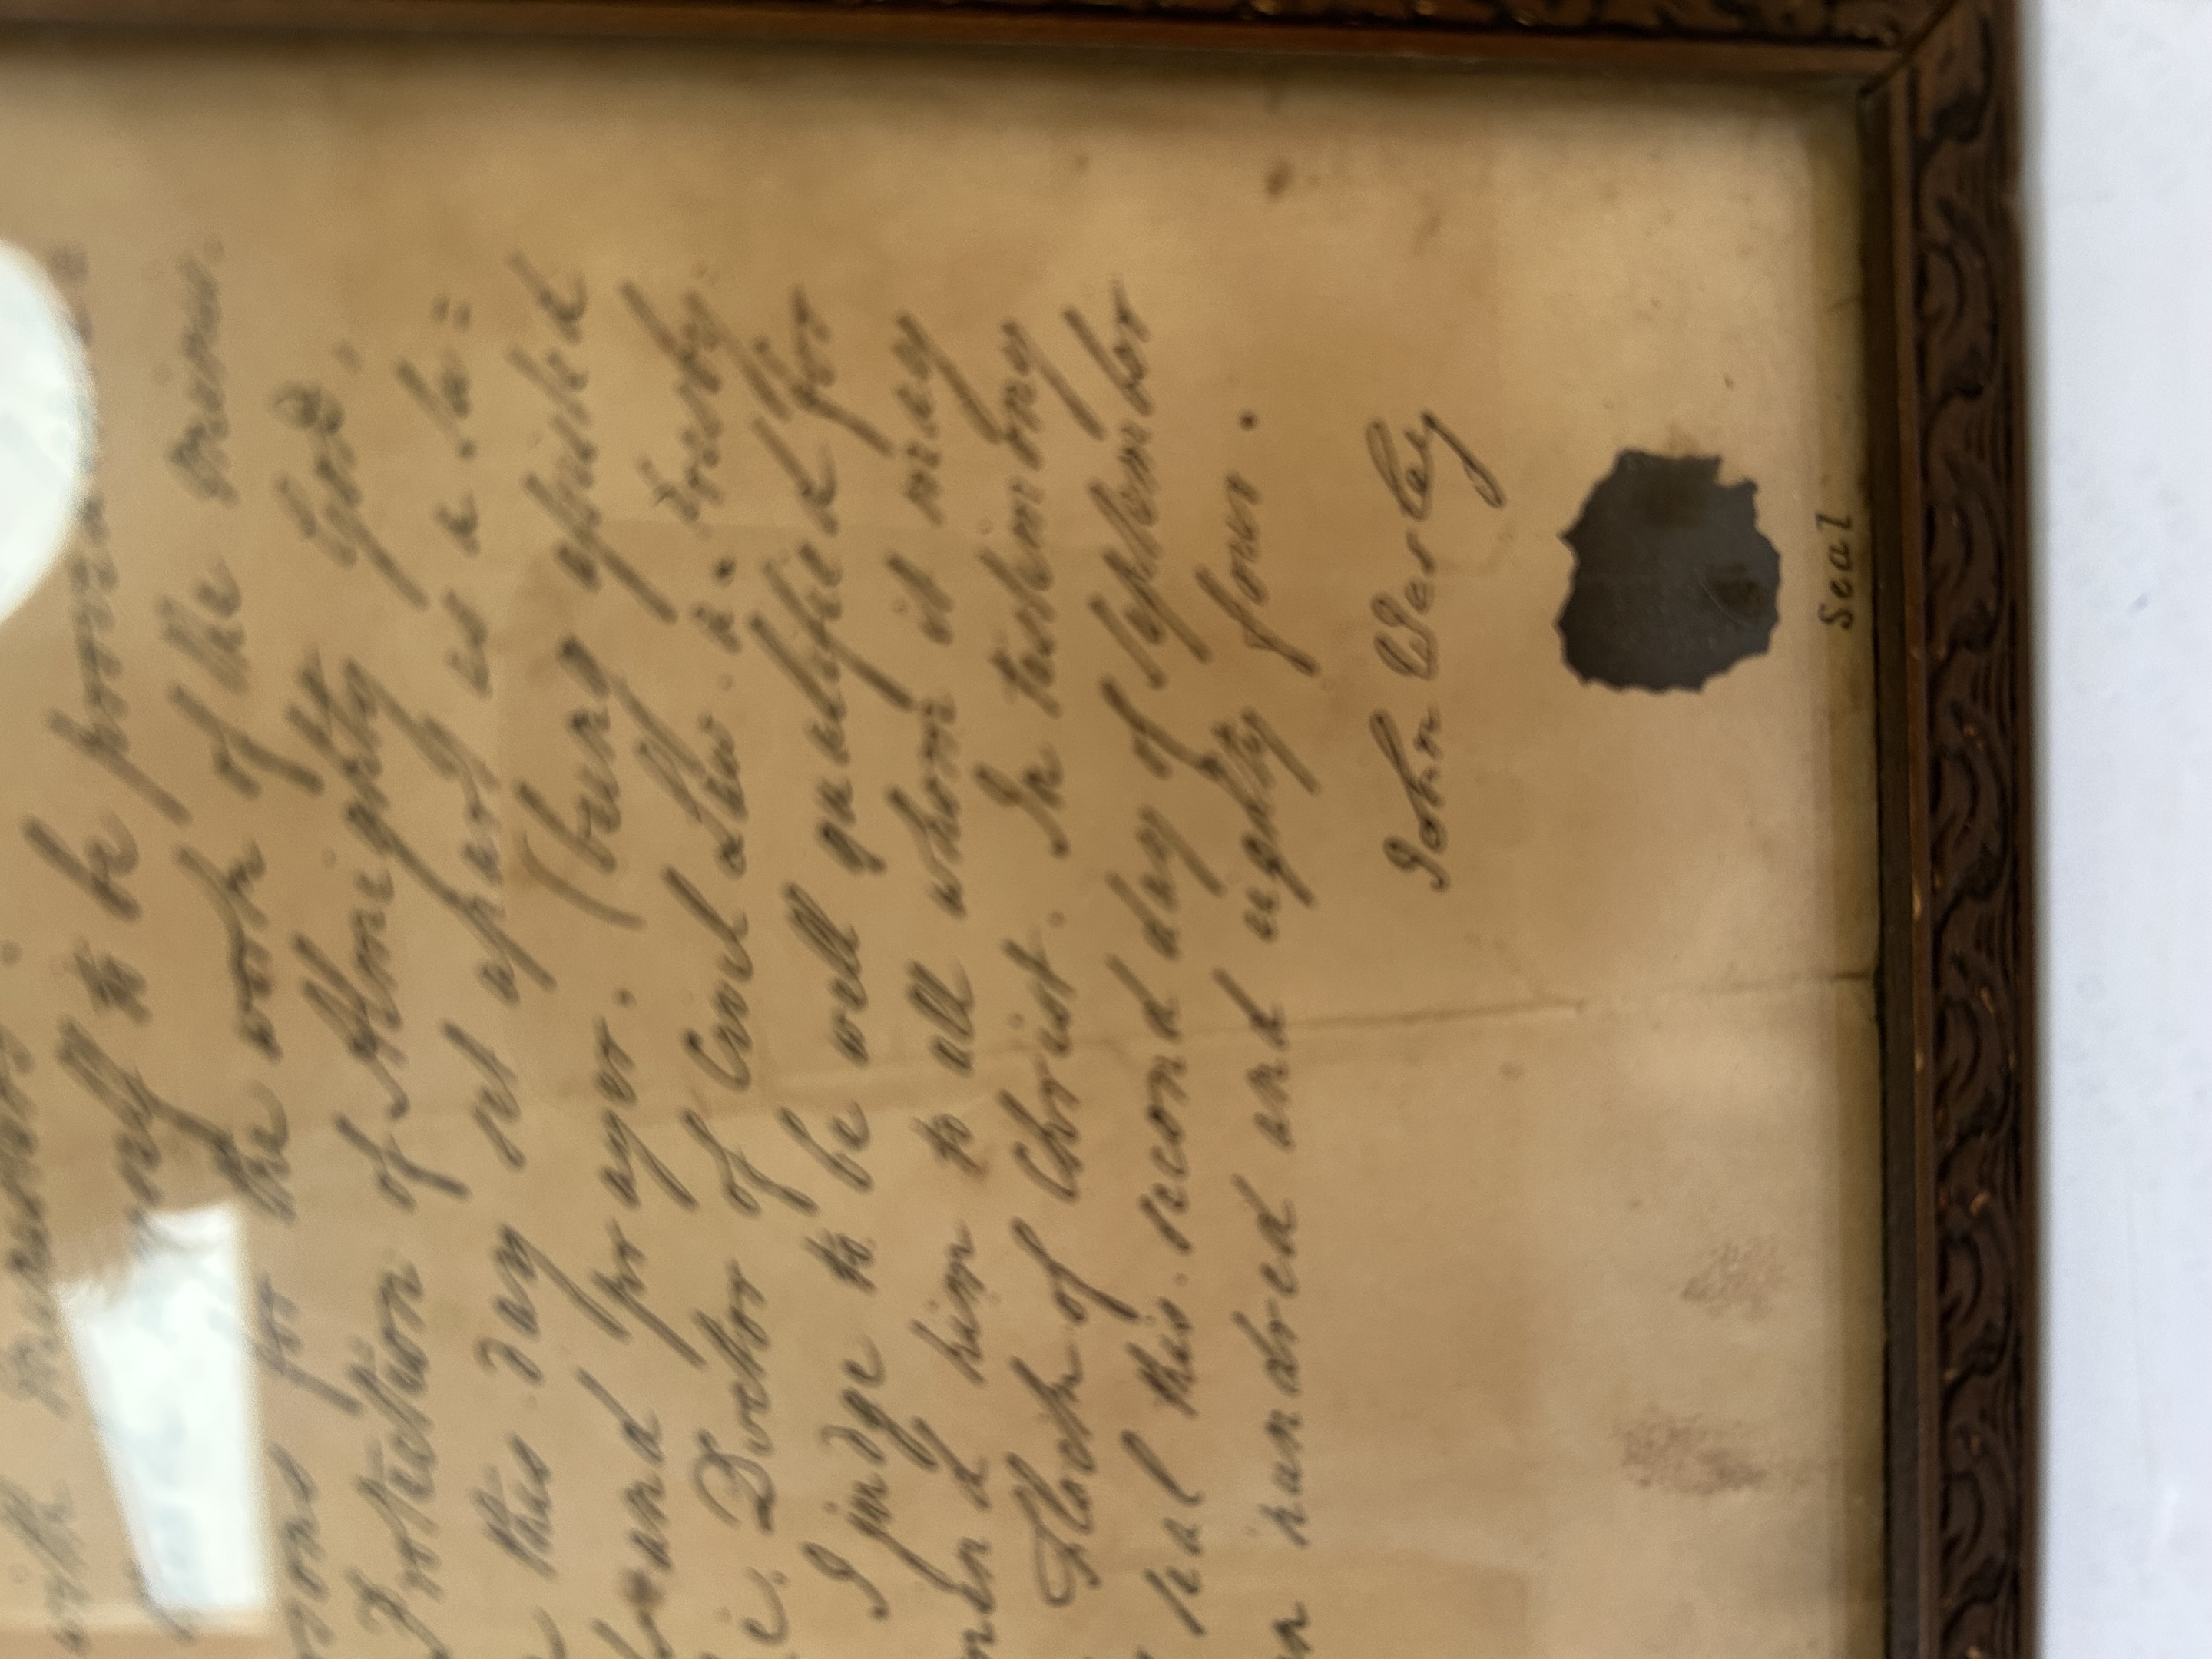 with
to be
for the work of the min.
Protection of Almighty God,
this day set apart as a Su=
and prayer. (being assisted
e. Doctor of Civil Law. a. Presby.
I judge to be well qualified for
mend him to all whom it may
Flock of Christ. In testimony
seal this. second day of September
n hundred and eighty four.
John Wesley
Seal